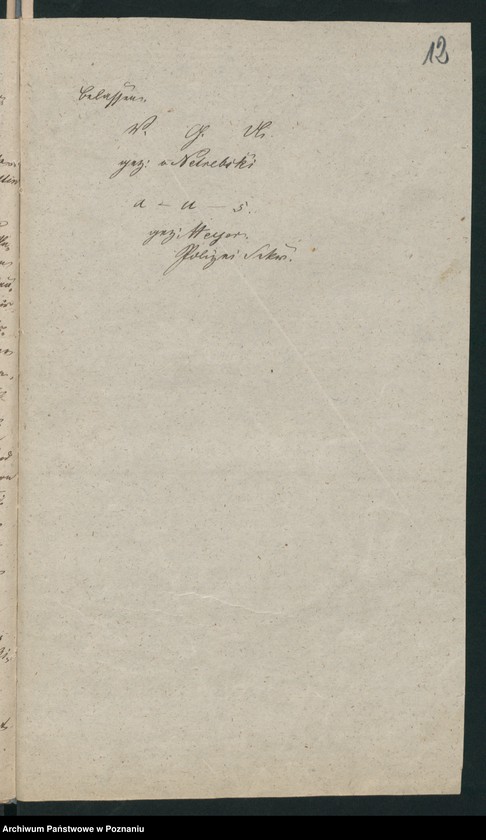 12
belassen.
V. G. U.
gez: v Netrebski
a – u – s.
gez: Meyer.
Polizei Sekr.
Archiwum Państwowe w Poznaniu